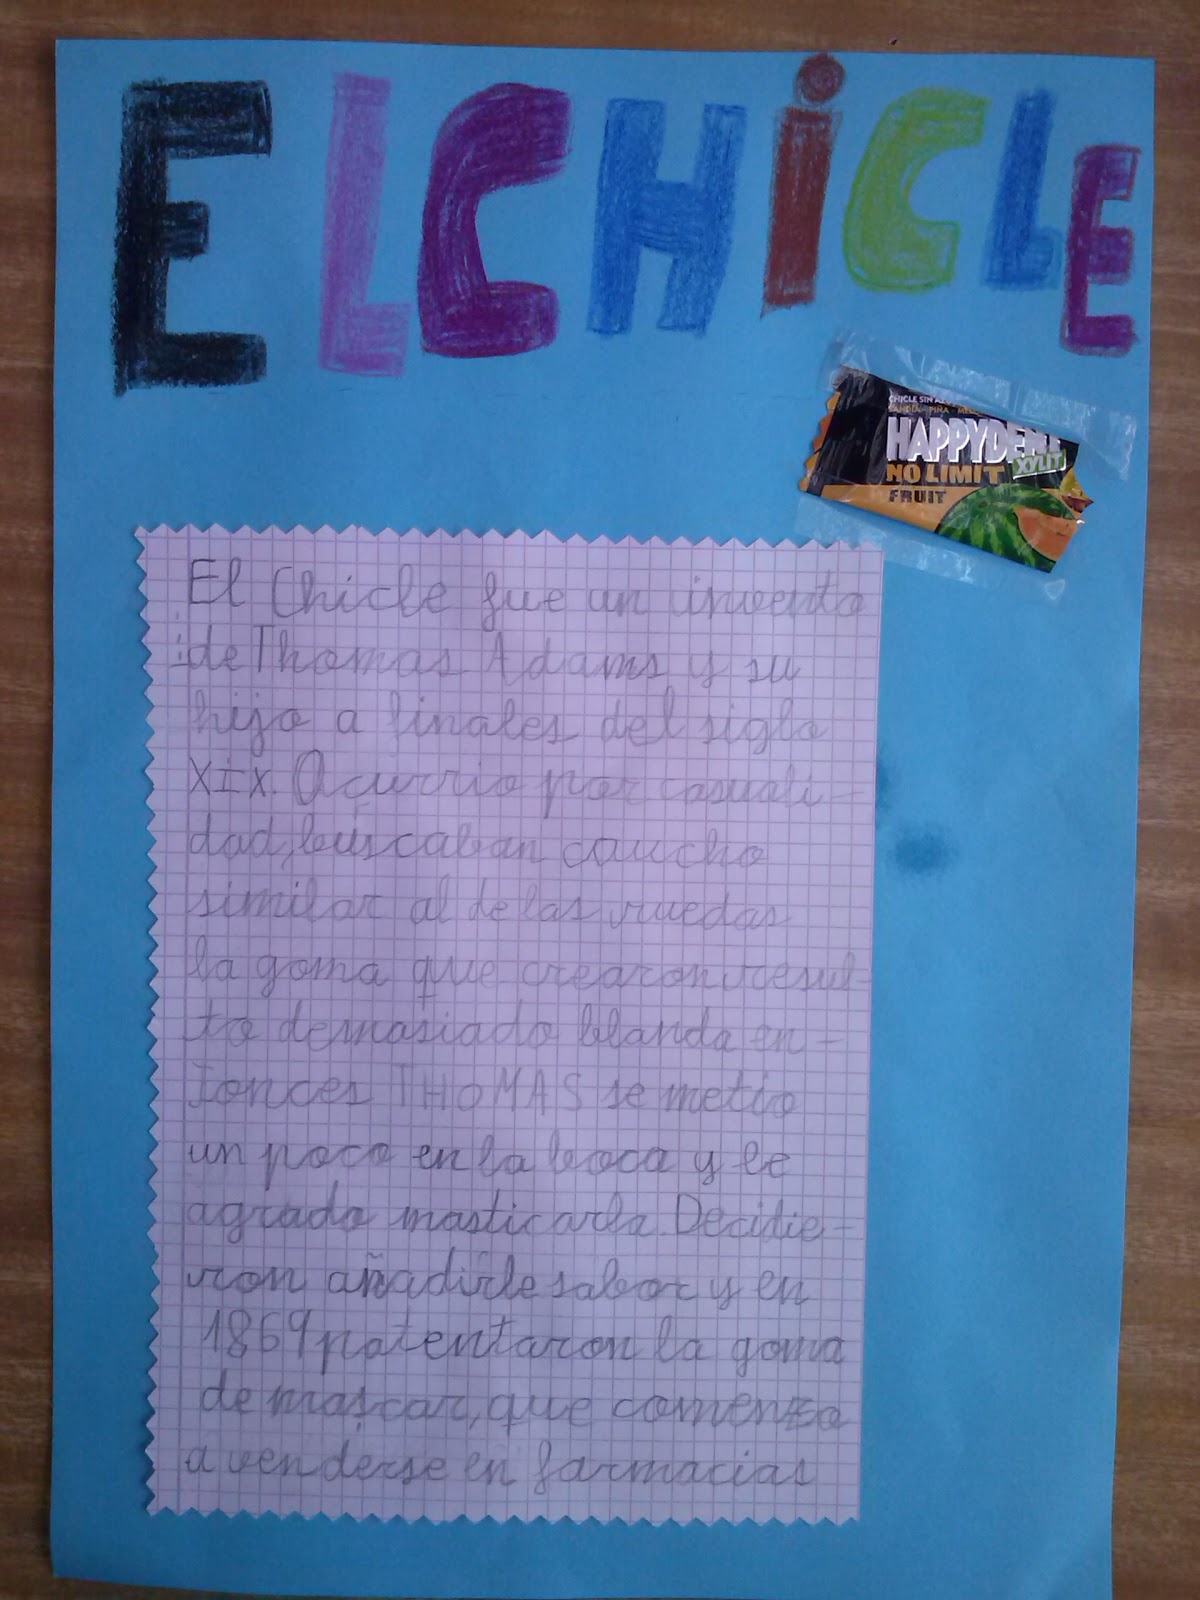 EL CHiCLE
CHICLE SIN
PIÑA
HAPPYDENT
XYLIT
NO LIMIT
FRUIT
El Chicle fue un invento
de Thomas Adams y su
hijo a finales del siglo
XIX. Ocurrio por casuali-
dad, buscaban caucho
similar al de las ruedas
la goma que crearon resul-
to demasiado blanda en-
tonces THOMAS se metio
un poco en la boca y le
agrado masticarla. Decidie-
ron añadirle sabor y en
1869 patentaron la goma
de mascar, que comenzo
a venderse en farmacias